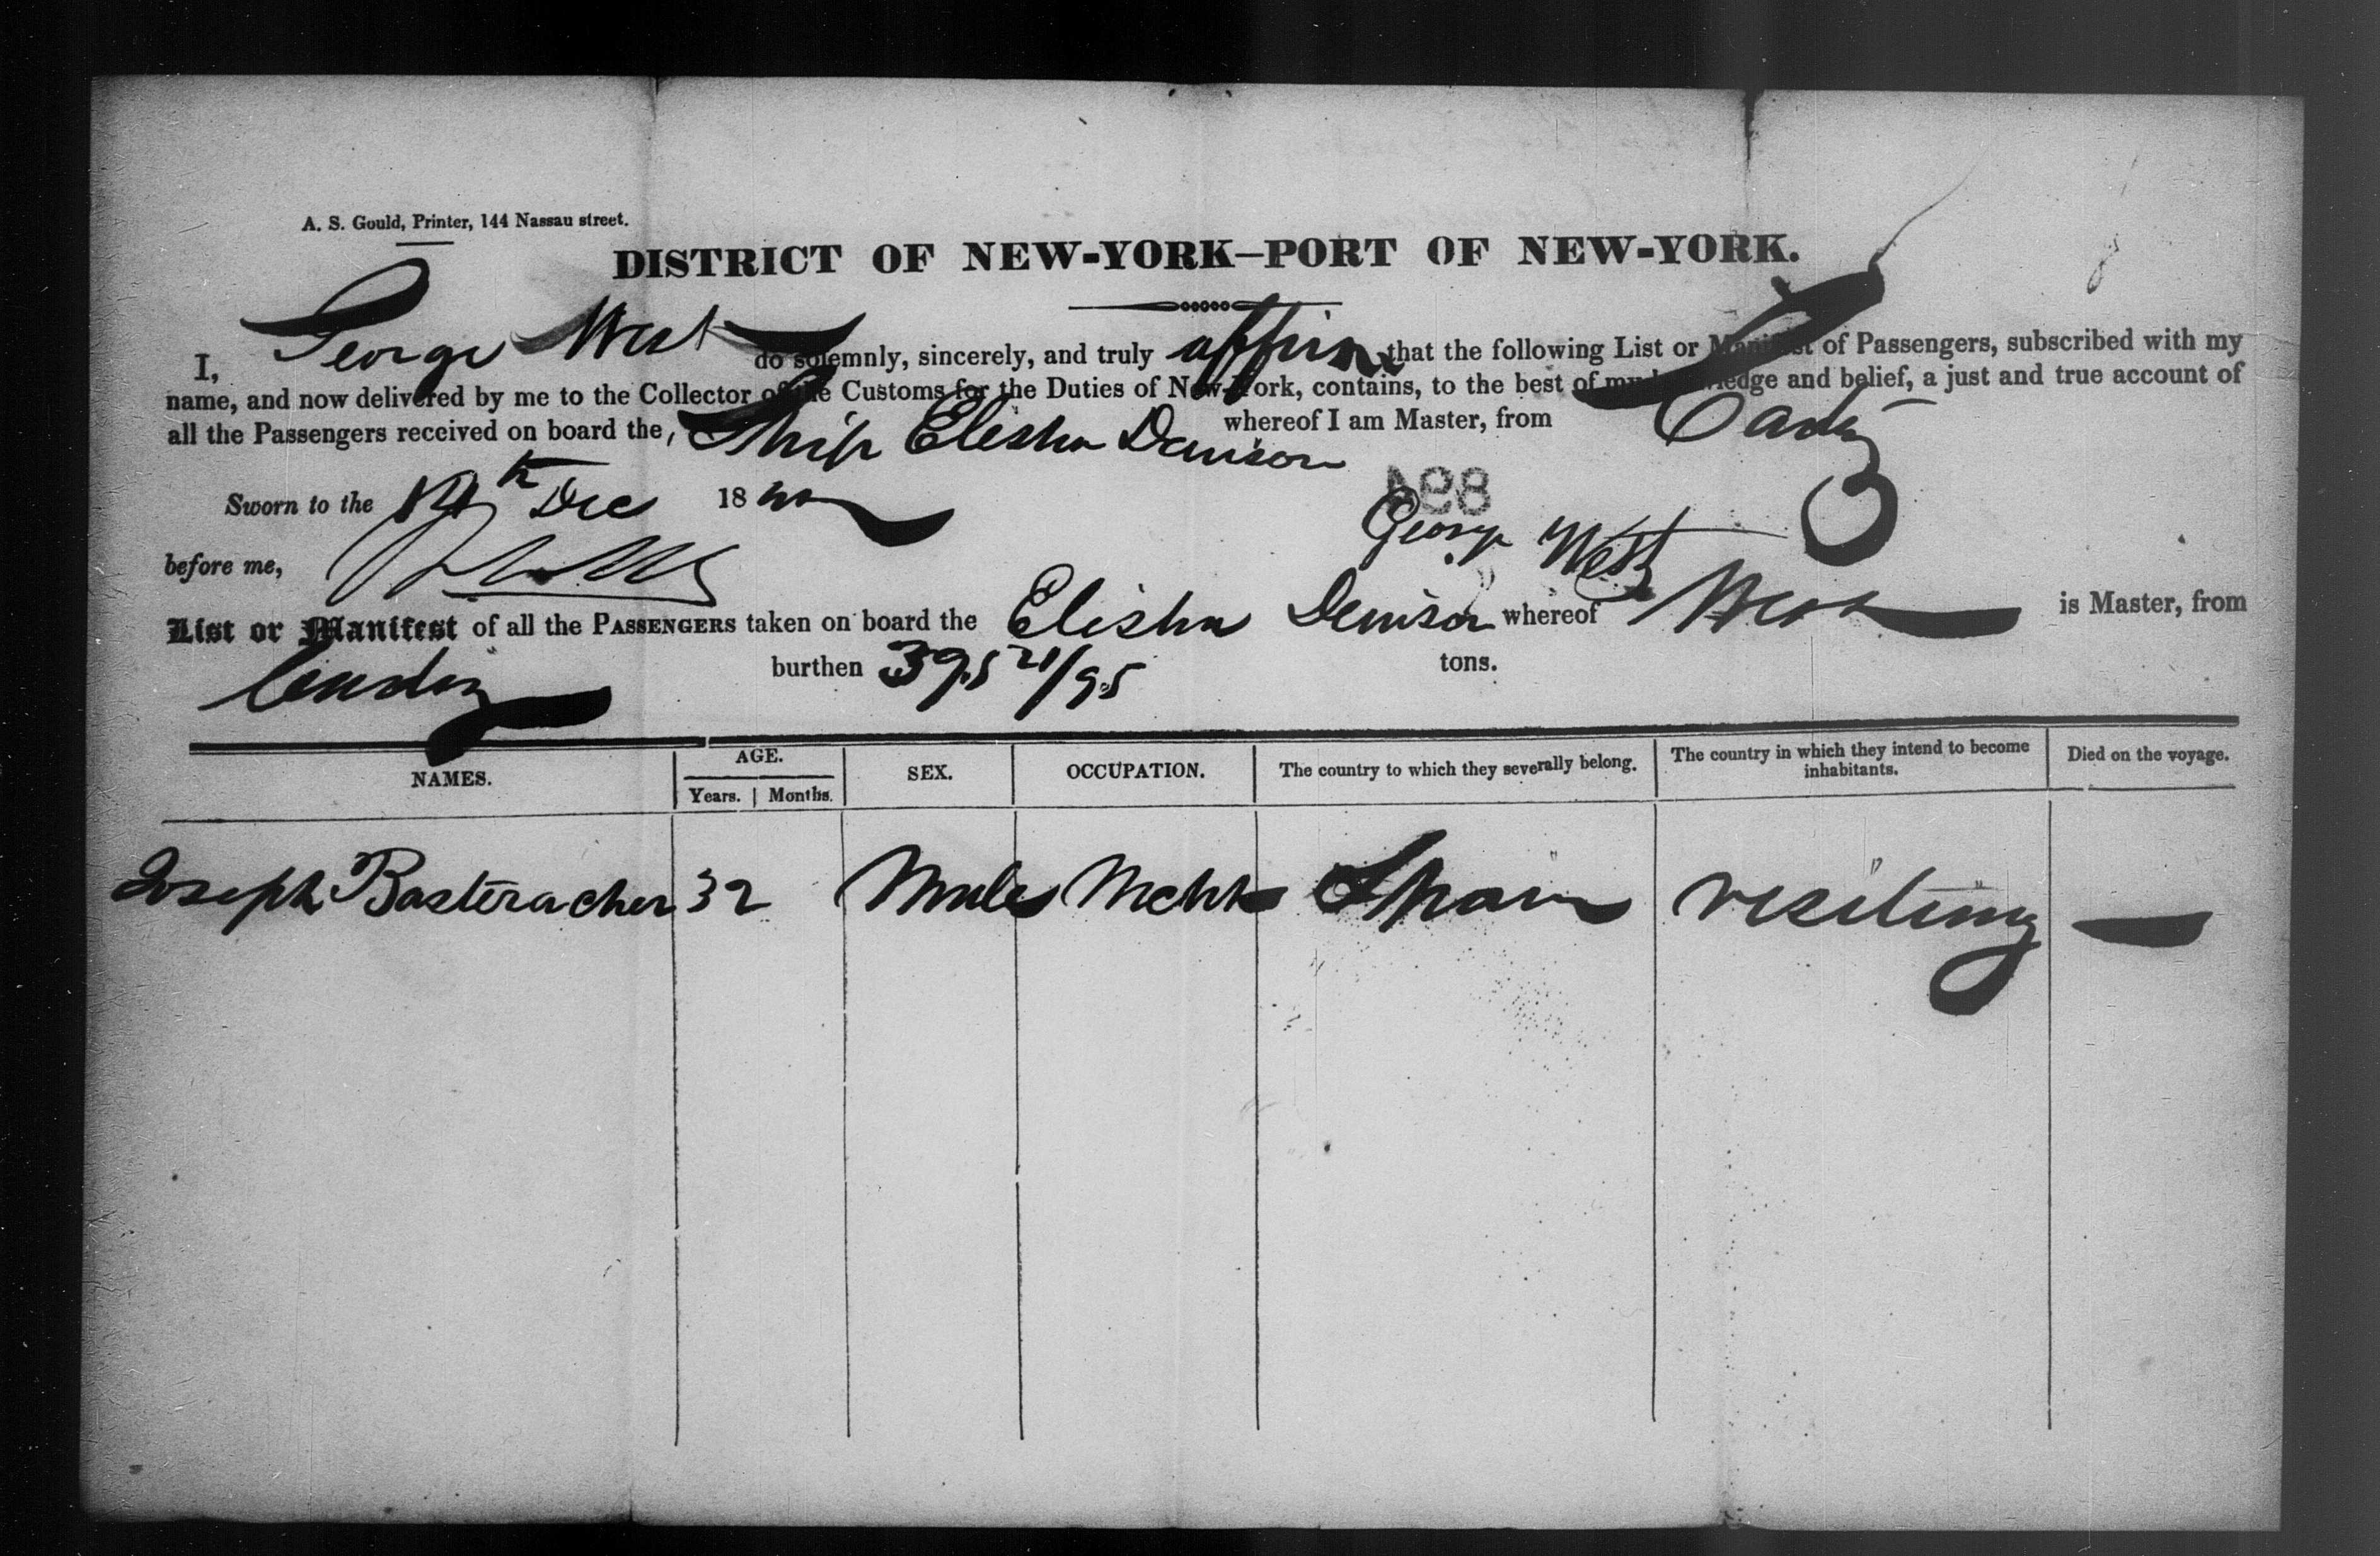 A. S. Gould, Printer, 144 Nassau street.
DISTRICT OF NEW-YORK—PORT OF NEW-YORK.
I, George West do solemnly, sincerely, and truly affirm that the following List or Manifest of Passengers, subscribed with my
name, and now delivered by me to the Collector of the Customs for the Duties of New-York, contains, to the best of my knowledge and belief, a just and true account of
all the Passengers received on board the, Ship Elisha Denison whereof I am Master, from Cadiz
Sworn to the Dec 18
before me,
George West
List or Manifest of all the PASSENGERS taken on board the Elisha Denison whereof West is Master, from
Cadiz burthen 395 21/95 tons.
NAMES. AGE. Years. Months. SEX. OCCUPATION. The country to which they severally belong. The country in which they intend to become inhabitants. Died on the voyage.
Joseph Basteracher 32 Male Mcht Spain visiting —